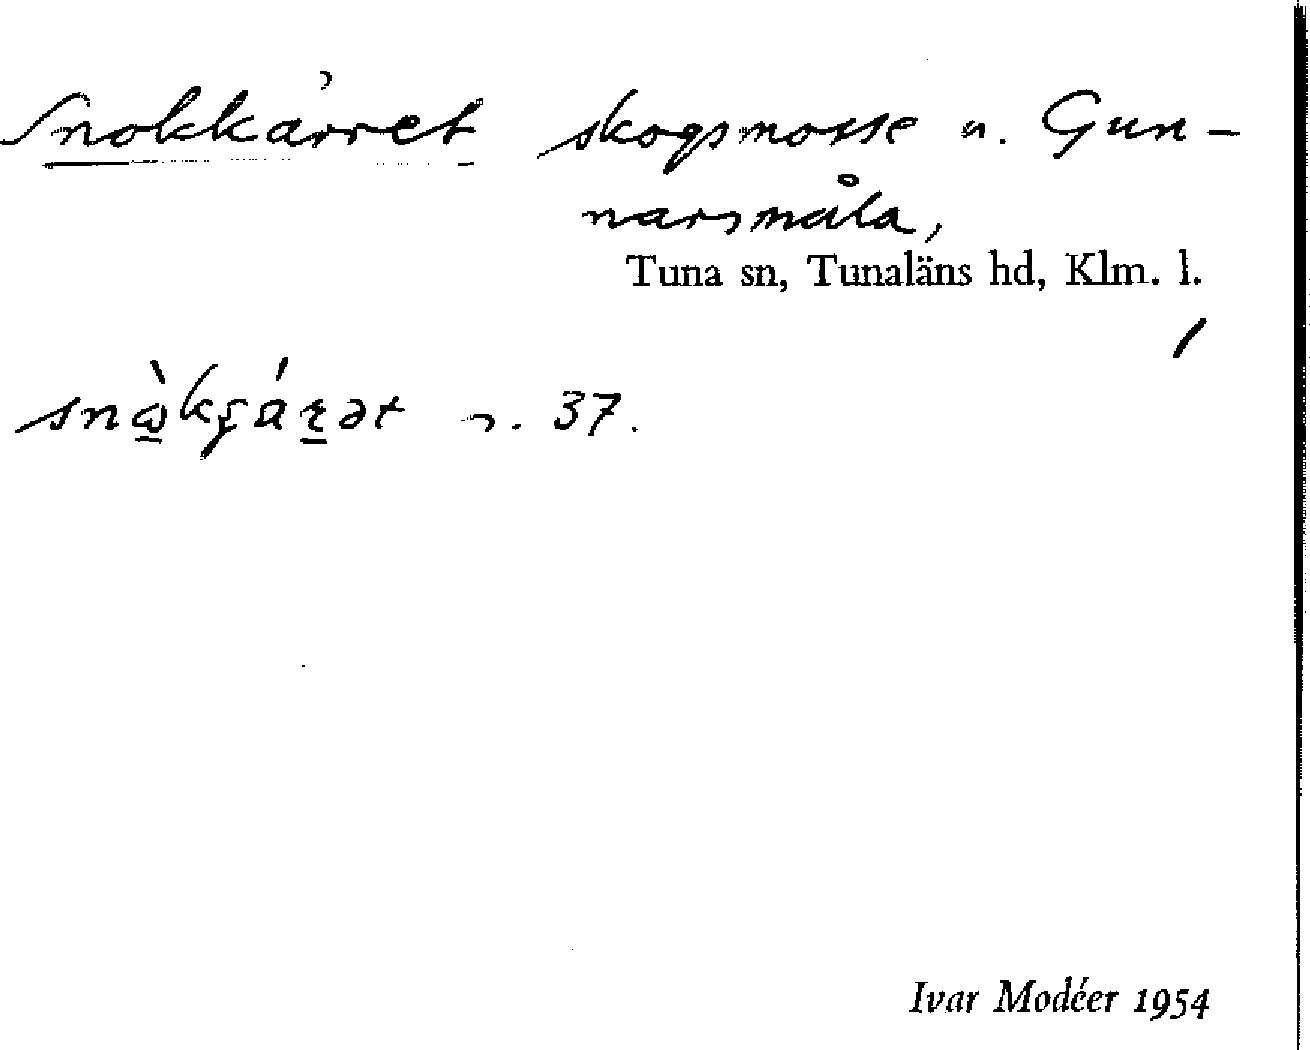 Snokkärret skogsmosse u. Gun-
narsmåla,
Tuna sn, Tunaläns hd, Klm. l.
n. 37.
Ivar Modéer 1954